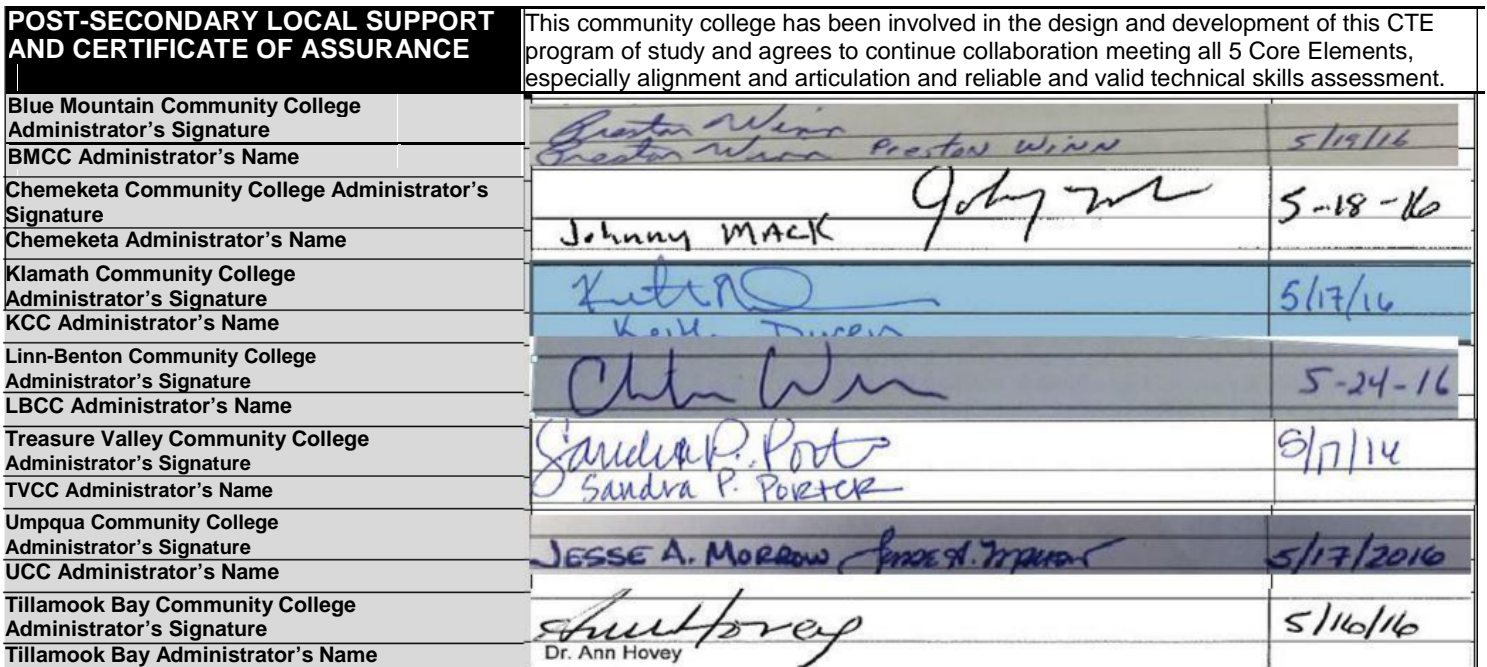 POST-SECONDARY LOCAL SUPPORT
AND CERTIFICATE OF ASSURANCE
This community college has been involved in the design and development of this CTE
program of study and agrees to continue collaboration meeting all 5 Core Elements,
especially alignment and articulation and reliable and valid technical skills assessment.
Blue Mountain Community College
Administrator's Signature
Preston Winn
BMCC Administrator's Name
Preston Winn Preston Winn 5/19/16
Chemeketa Community College Administrator's
Signature
5-18-16
Chemeketa Administrator's Name
Johnny MACK
Klamath Community College
Administrator's Signature
5/17/16
KCC Administrator's Name
Linn-Benton Community College
Administrator's Signature
5-24-16
LBCC Administrator's Name
Treasure Valley Community College
Administrator's Signature
Sandra P. Porter
TVCC Administrator's Name
Sandra P. PORTER
Umpqua Community College
Administrator's Signature
JESSE A. MORROW Jesse A. Morrow 5/17/2016
UCC Administrator's Name
Tillamook Bay Community College
Administrator's Signature
Ann Hovey 5/16/16
Tillamook Bay Administrator's Name
Dr. Ann Hovey